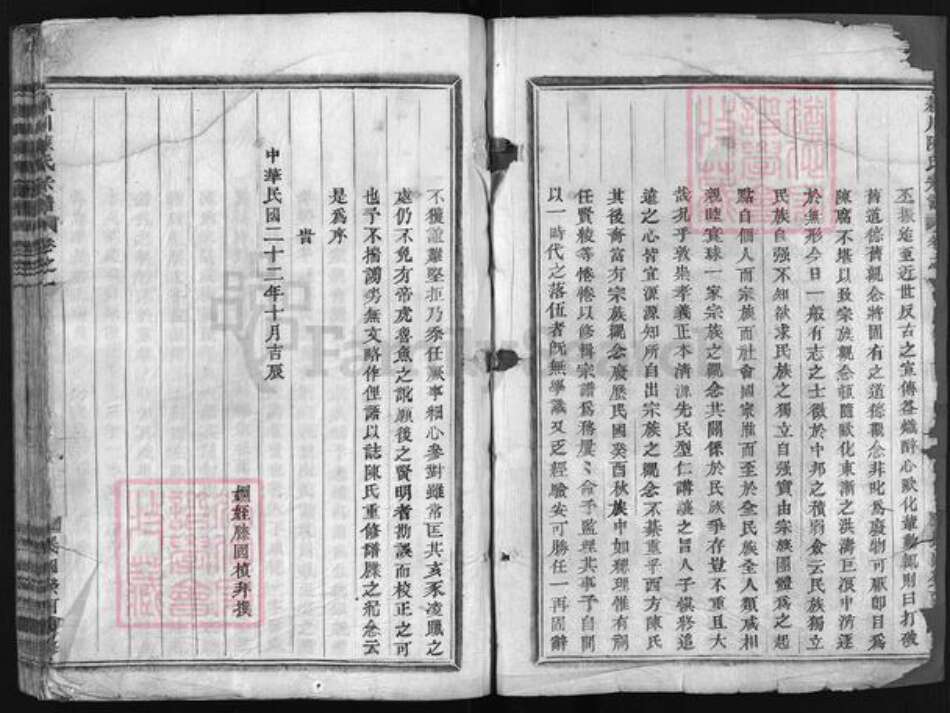 丕振迨至近世反古之宣傳益熾醉心歐化輩動輒則曰打破
舊道德舊觀念將固有之道德觀念非叱為廢物可厭即目為
陳腐不堪以致宗族觀念頓隨歐化東漸之洪濤巨浪中湧逐
於無形今日一般有志之士徵於中邦之積弱僉云民族獨立
民族自强不知欲求民族之獨立自强實由宗族團體為之起
點自個人而宗族而社會國家推而至於全民族全人類咸相
親睦寰球一家宗族之觀念其關係於民族爭存豈不重且大
哉見乎敦崇孝義正本清源先民型仁講讓之旨人子慎終追
遠之心皆宜源源知所自出宗族之觀念不綦重乎西方陳氏
其後裔富有宗族觀念爰歷民國癸酉秋族中如理惟有嗣
任賢稜等惓惓以修輯宗譜為務屢〻命予監理其事予自問
以一時代之落伍者既無學識又乏經驗安可勝任一再固辭
不獲誼難堅拒乃忝任厥事細心參對雖常匡其亥豕淩躐之
處仍不免有帝虎魯魚之訛願後之賢明者勘誤而校正之可
也予不揣謭劣無文略作俚語以誌陳氏重修譜牒之紀念云
是為序
旹
中華民國二十二年十月吉辰
國楨拜撰